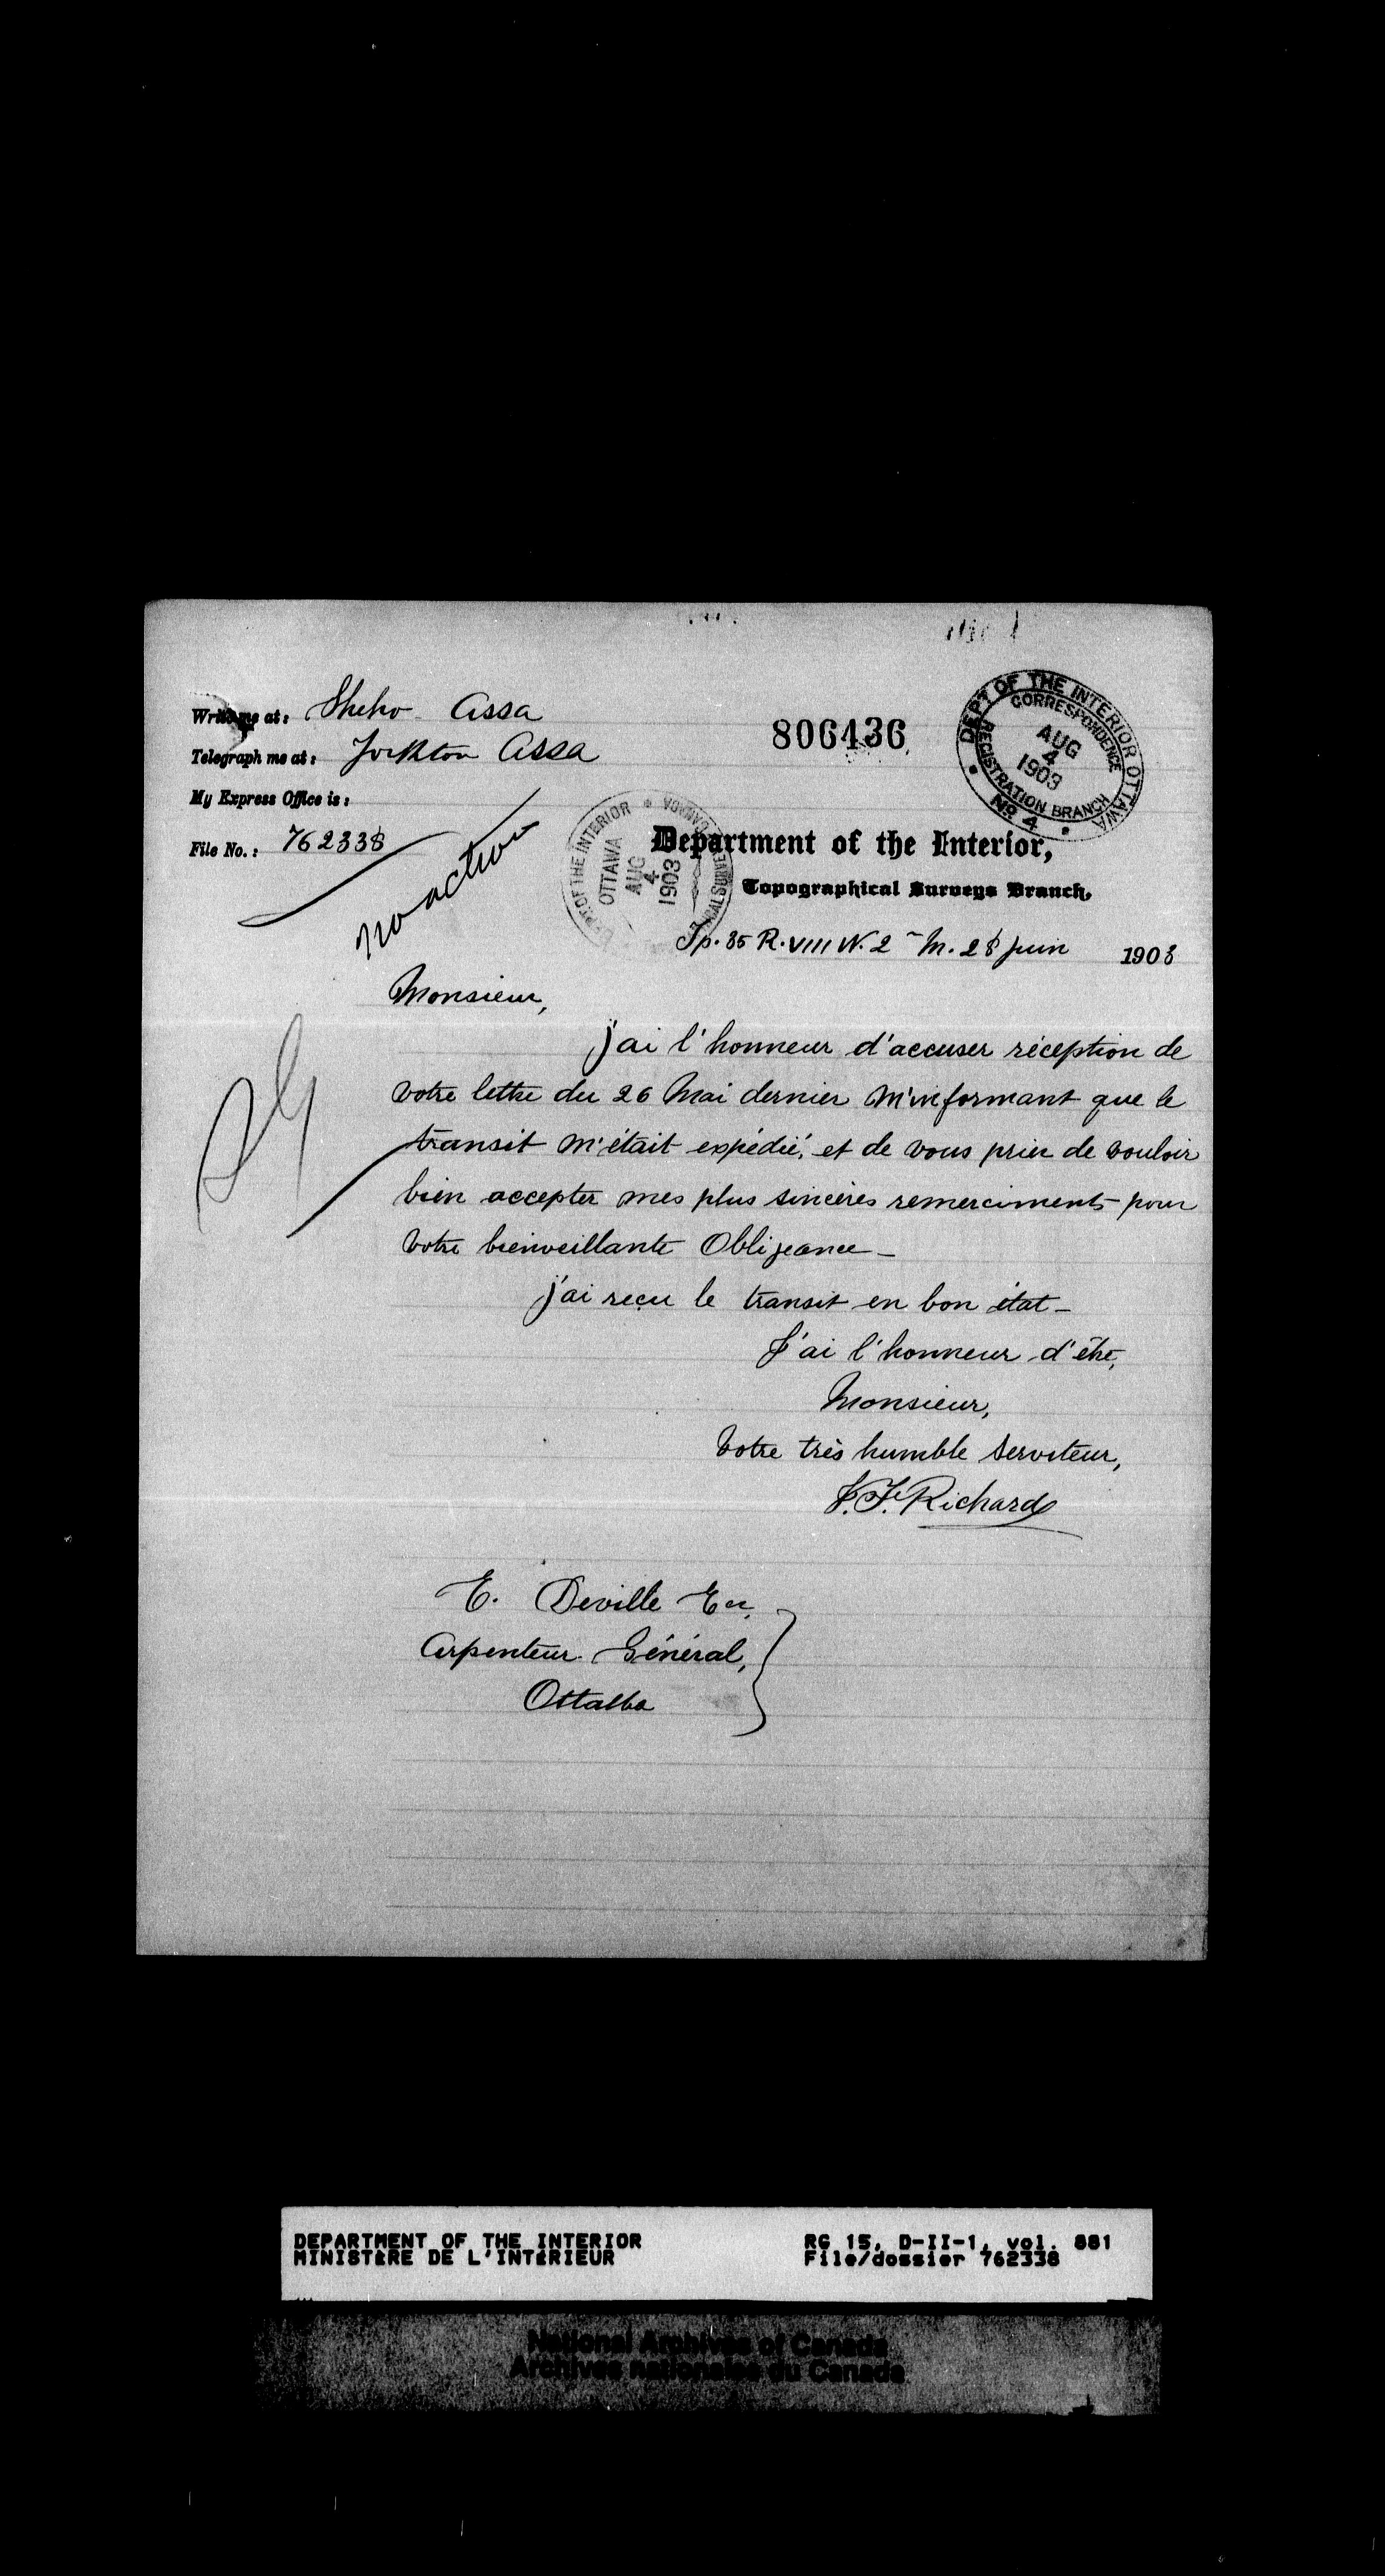 Write me at: Sheho Assa
Telegraph me at: Yorkton Assa
My Express Office is:
File No.: 762338
no action
806436
DEP'T OF THE INTERIOR OTTAWA
CORRESPONDENCE
REGISTRATION BRANCH
AUG
4
1903
No. 4
DEPT. OF THE INTERIOR
OTTAWA
AUG
4
1903
Department of the Interior,
Topographical Surveys Branch,
Tp. 35 R. VIII W. 2 - M. 28 juin 1903
Monsieur,
j'ai l'honneur d'accuser réception de
votre lettre du 26 Mai dernier m'informant que le
transit m'était expédié, et de vous prier de vouloir
bien accepter mes plus sincères remerciments pour
votre bienveillante Obligeance -
j'ai reçu le transit en bon état -
J'ai l'honneur d'être,
Monsieur,
Votre très humble serviteur,
J.F. Richard
E. Deville Ecr,
Arpenteur Général,
Ottawa
DEPARTMENT OF THE INTERIOR
MINISTÈRE DE L'INTÉRIEUR
RG 15, D-II-1, vol. 881
File/dossier 762338
National Archives of Canada
Archives nationales du Canada